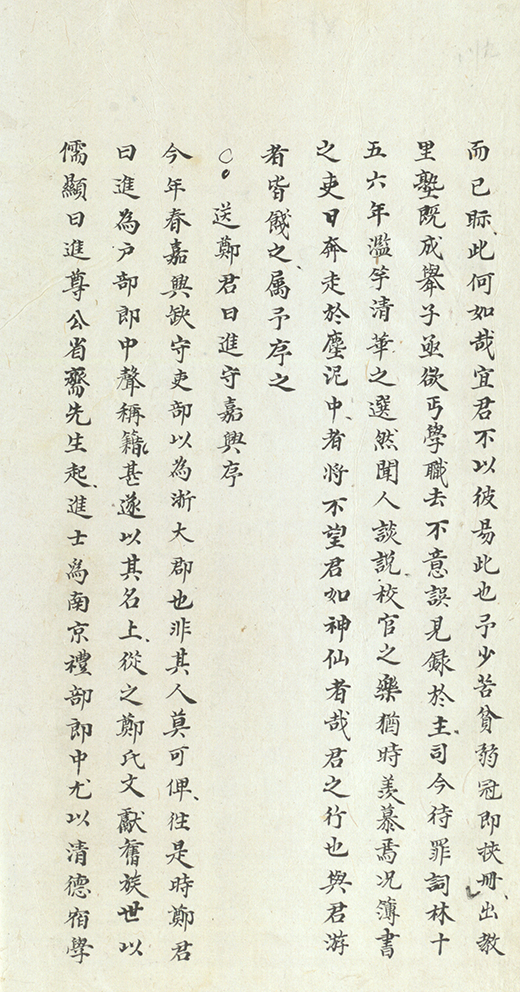 而已眎此何如哉宜君不以彼易此也予少苦貧弱冠即挾冊出教
里塾既成舉子亟欲丐學職去不意誤見錄於主司今待罪詞林十
五六年濫竽清華之選然聞人談説校官之樂猶時羨慕焉况簿書
之吏日奔走於塵泥中者將不望君如神仙者哉君之行也與君游
者皆餞之属予序之
送鄭君日進守嘉興序
今年春嘉興缺守吏部以為浙大郡也非其人莫可俾往是時鄭君
日進為户部郎中聲稱籍甚遂以其名上從之鄭氏文獻舊族世以
儒顯日進尊公省齋先生起進士為南京禮部郎中尤以清德宿學